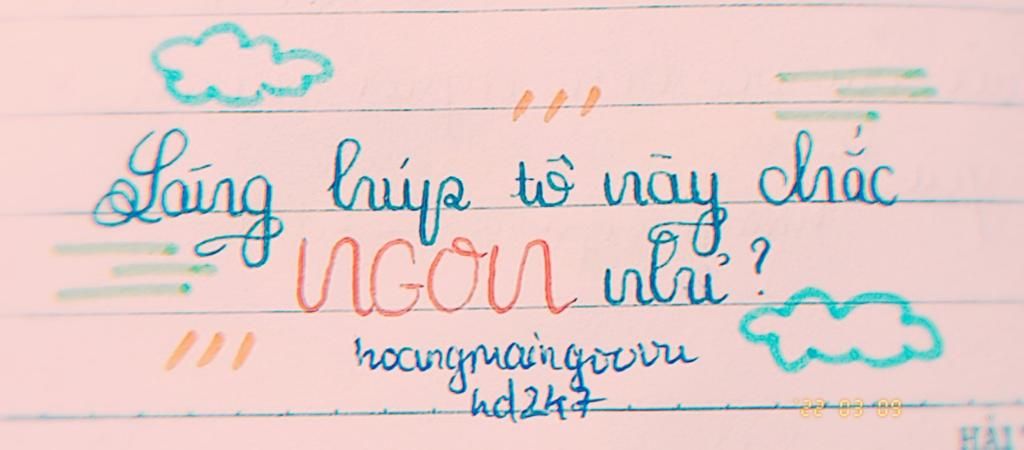 Sáng húp tô này chắc
NGON nhỉ?
hoangmaingovvu
hd247
'22 03 09
HẢI